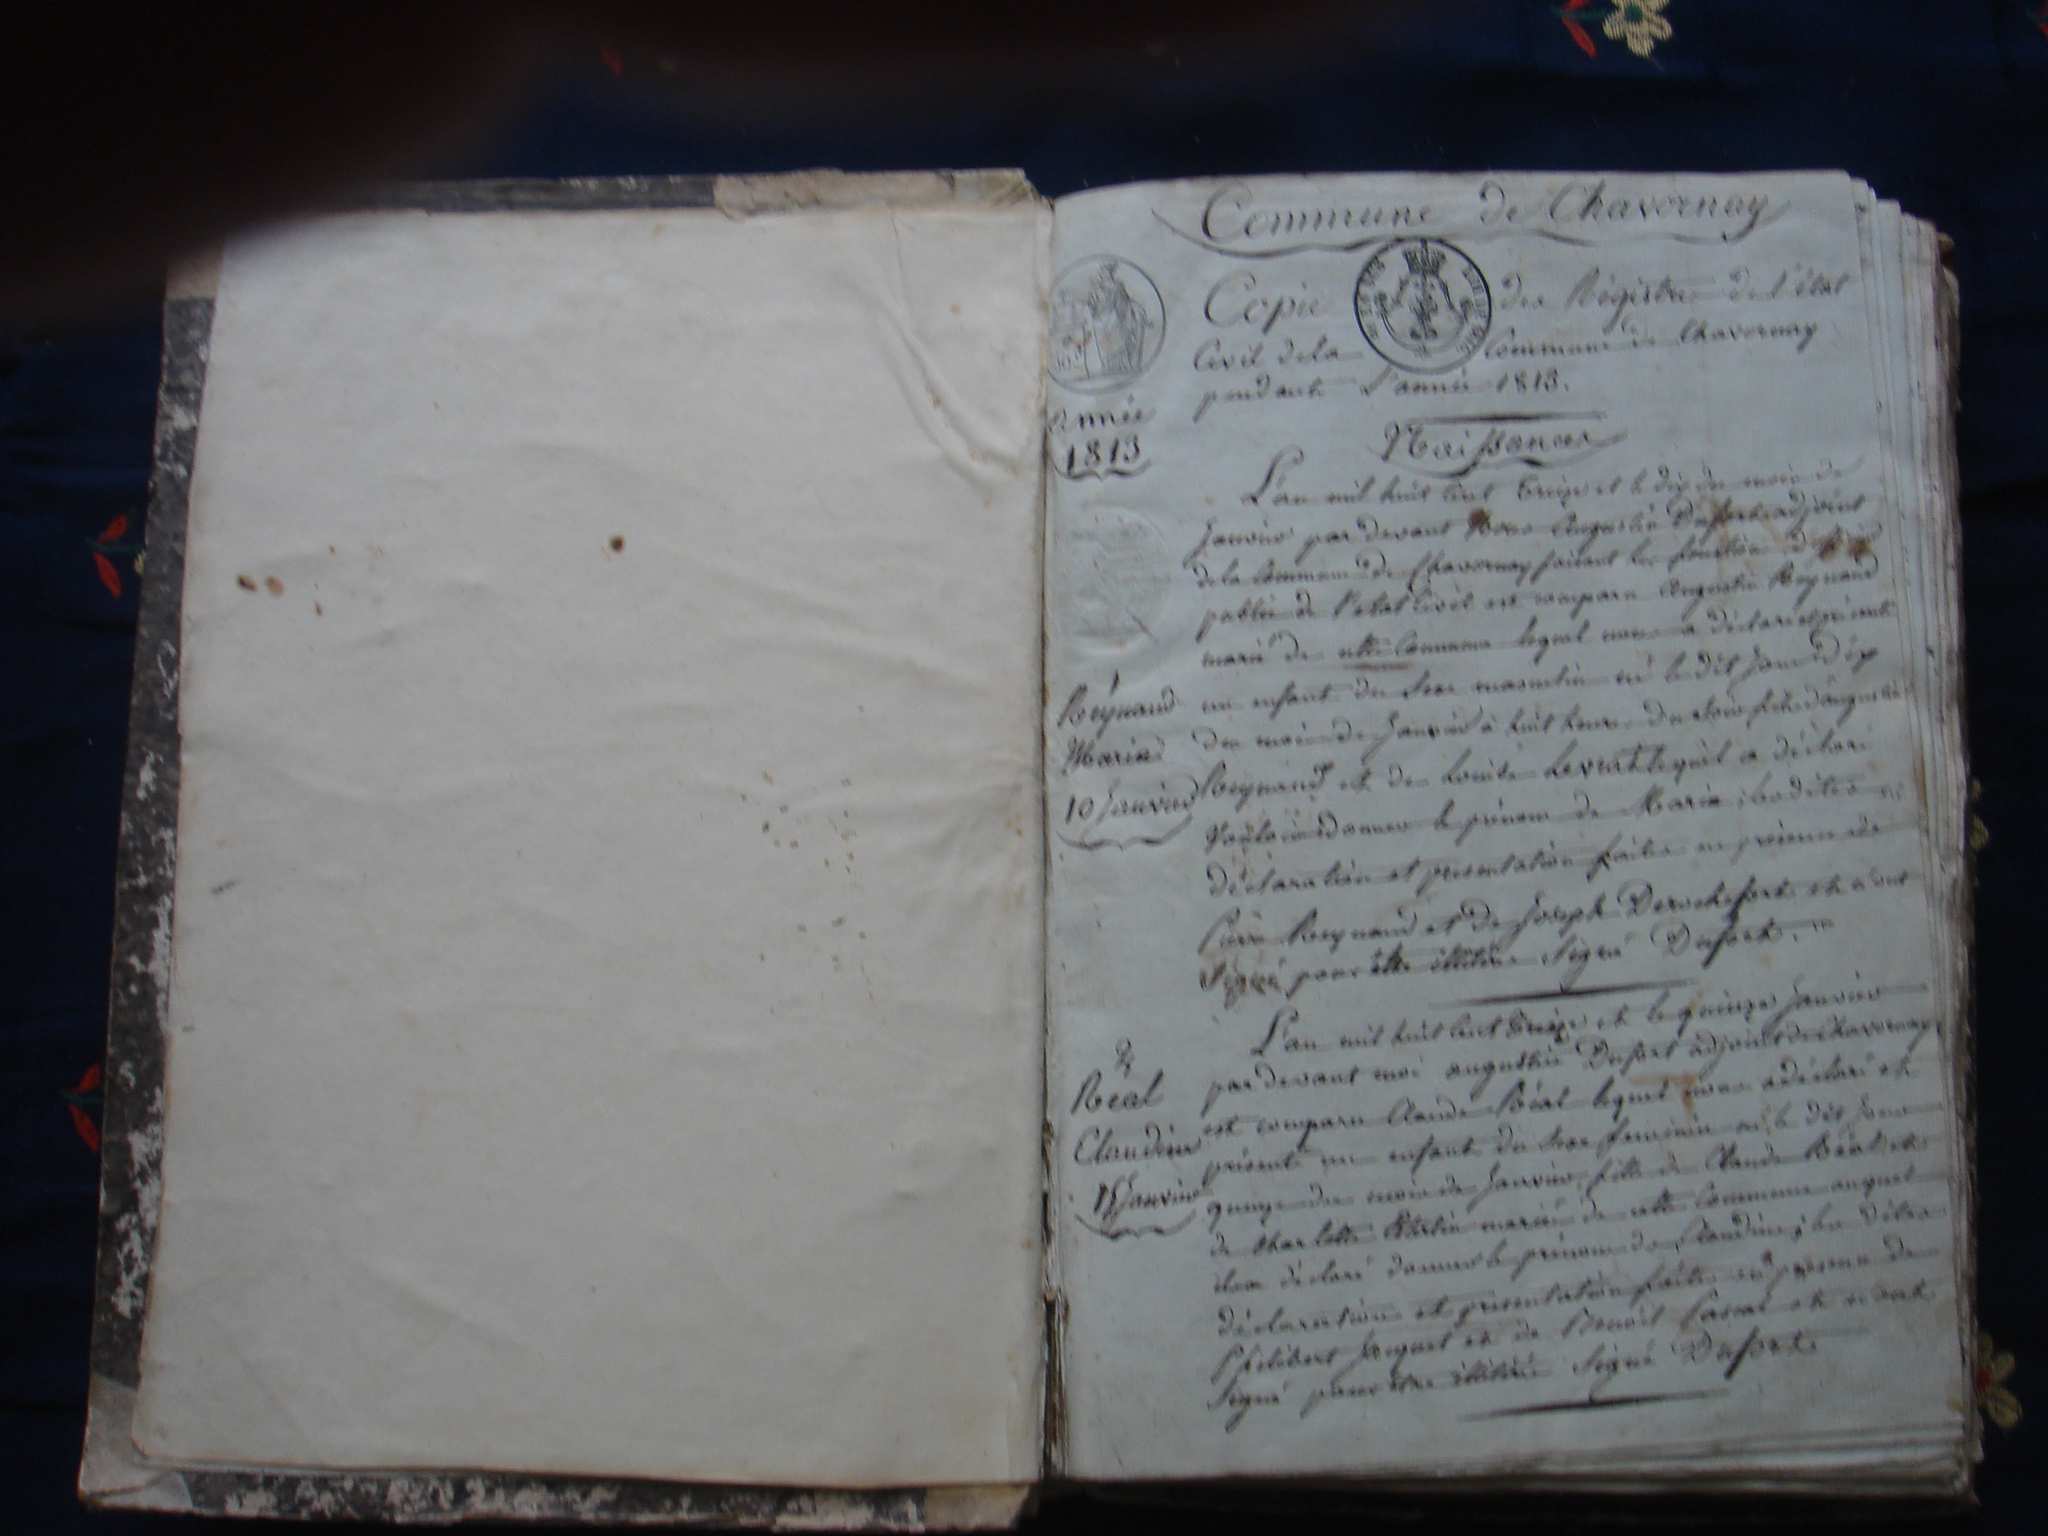 Commune de Chavornay
Copie des Régistres de l'état
Civil de la Commune de Chavornay
pendant l'année 1813.
année
1813
Naissances
L'an mil huit cent treize et le dix du mois de
Janvier par devant Nous Augustin Dufort adjoint
de la Commune de Chavornay faisant les fonction
public de l'etat Civil est comparu Augustin Reynaud
marié de cette Commune lequel nous a déclaré et présenté
1
Reynaud
Maria
10 Janvier
un enfant du sexe masculin né le dit jour dix
du mois de Janvier à huit heures du soir fils d'augustin
Reynaud et de Louise lequel a déclaré
vouloir donner le prénom de Maria, les dites
déclaration et presentation faites en présence de
Pierre Reynaud et de Joseph Derochefort et n'ont
signé pour être illitéré Signé Dufort.
2
Réal
Claudine
15 Janvier
L'an mil huit cent treize et le quinze Janvier
par devant moi augustin Dufort adjoint de Chavornay
est comparu Claude Réal lequel nous a déclaré et
présenté un enfant du sexe feminin né le dit jour
quinze du mois de Janvier, fille de Claude Réal et
de Charlotte mariés de cette Commune auquel
il a déclaré donner le prénom de Claudine; les dites
déclaration et presentation faites en présence de
Philibert Jacquet et de Benoit et n'ont
signé pour être illitéré Signé Dufort.